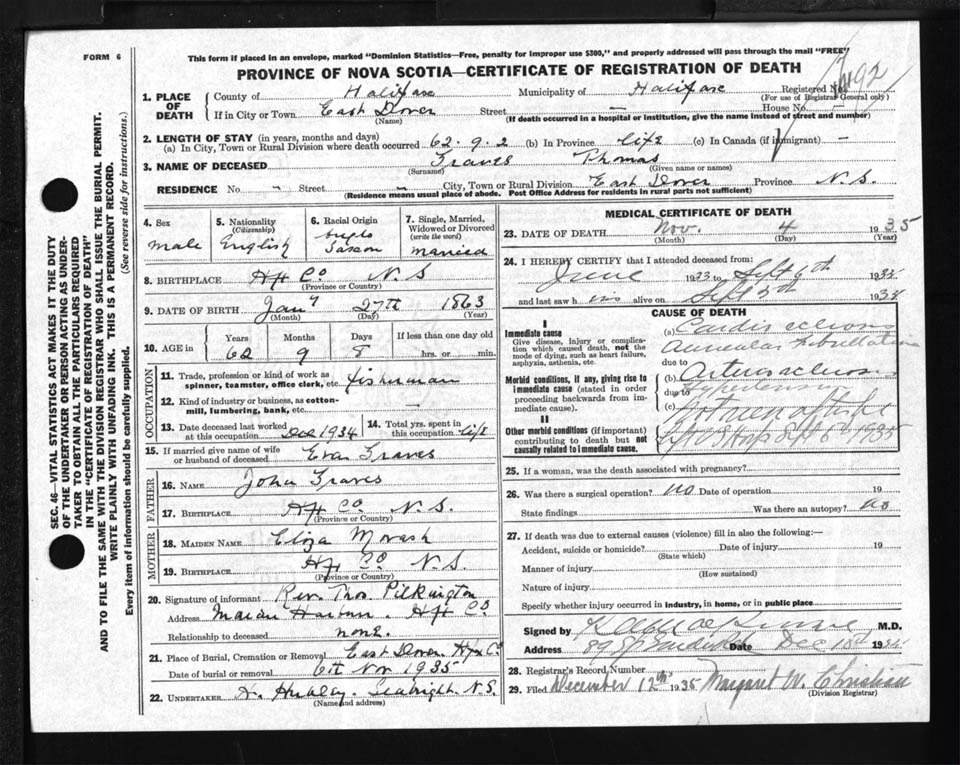 FORM 6
This form if placed in an envelope, marked "Dominion Statistics—Free, penalty for improper use $300," and properly addressed will pass through the mail "FREE"
PROVINCE OF NOVA SCOTIA—CERTIFICATE OF REGISTRATION OF DEATH
1. PLACE OF DEATH County of Halifax Municipality of Halifax Registered No.
(For use of Registrar General only)
If in City or Town East Dover Street — House No.
(Name) (If death occurred in a hospital or institution, give the name instead of street and number)
2. LENGTH OF STAY (in years, months and days)
(a) In City, Town or Rural Division where death occurred 62.9.2 (b) In Province life (c) In Canada (if immigrant) —
3. NAME OF DECEASED Graves Thomas
(Surname) (Given name or names)
RESIDENCE No. - Street - City, Town or Rural Division East Dover Province N.S.
(Residence means usual place of abode. Post Office Address for residents in rural parts not sufficient)
4. Sex male
5. Nationality (Citizenship) English
6. Racial Origin anglo Saxon
7. Single, Married, Widowed or Divorced (write the word) married
8. BIRTHPLACE Hfx Co N.S
(Province or Country)
9. DATE OF BIRTH Jany 27th 1863
(Month) (Day) (Year)
10. AGE in Years Months Days If less than one day old
62 9 8 hrs. or min.
OCCUPATION
11. Trade, profession or kind of work as spinner, teamster, office clerk, etc. fisherman
12. Kind of industry or business, as cotton-mill, lumbering, bank, etc. —
13. Date deceased last worked at this occupation Dec 1934
14. Total yrs. spent in this occupation life
15. If married give name of wife or husband of deceased Evan Graves
FATHER
16. NAME John Graves
17. BIRTHPLACE Hfx Co N.S.
(Province or Country)
MOTHER
18. MAIDEN NAME Eliza Morash
19. BIRTHPLACE Hfx Co N.S
(Province or Country)
20. Signature of informant Rev. Thos. Pilkington
Address Harbour. Hfx Co
Relationship to deceased none
21. Place of Burial, Cremation or Removal East Dover Hfx Co
Date of burial or removal 6th Nov 1935
22. UNDERTAKER Hubley. Seabright N.S.
(Name and address)
MEDICAL CERTIFICATE OF DEATH
23. DATE OF DEATH Nov. 4 1935
(Month) (Day) (Year)
24. I HEREBY CERTIFY that I attended deceased from:
June 1933 to Sept 6th 19
and last saw him alive on Sept 19
CAUSE OF DEATH
I
Immediate cause
Give disease, injury or complication which caused death, not the mode of dying, such as heart failure, asphyxia, asthenia, etc.
(a) Cardio sclerosis
Auricular fibrillation
due to
Morbid conditions, if any, giving rise to immediate cause (stated in order proceeding backwards from immediate cause).
(b) Arteriosclerosis
Hypertension
due to
(c)
II
Other morbid conditions (if important) contributing to death but not causally related to immediate cause.
Sept 6 1935
25. If a woman, was the death associated with pregnancy?
26. Was there a surgical operation? no Date of operation 19
State findings Was there an autopsy? no
27. If death was due to external causes (violence) fill in also the following:—
Accident, suicide or homicide? Date of injury 19
(State which)
Manner of injury
(How sustained)
Nature of injury
Specify whether injury occurred in industry, in home, or in public place
Signed by M.D.
Address Date Dec 19
28. Registrar's Record Number
29. Filed December 12th 1935 Margaret W. Christian
(Division Registrar)
SEC. 46—VITAL STATISTICS ACT MAKES IT THE DUTY
OF THE UNDERTAKER OR PERSON ACTING AS UNDER-
TAKER TO OBTAIN ALL THE PARTICULARS REQUIRED
IN THE "CERTIFICATE OF REGISTRATION OF DEATH"
AND TO FILE THE SAME WITH THE DIVISION REGISTRAR WHO SHALL ISSUE THE BURIAL PERMIT.
WRITE PLAINLY WITH UNFADING INK. THIS IS A PERMANENT RECORD.
Every item of information should be carefully supplied. (See reverse side for instructions.)